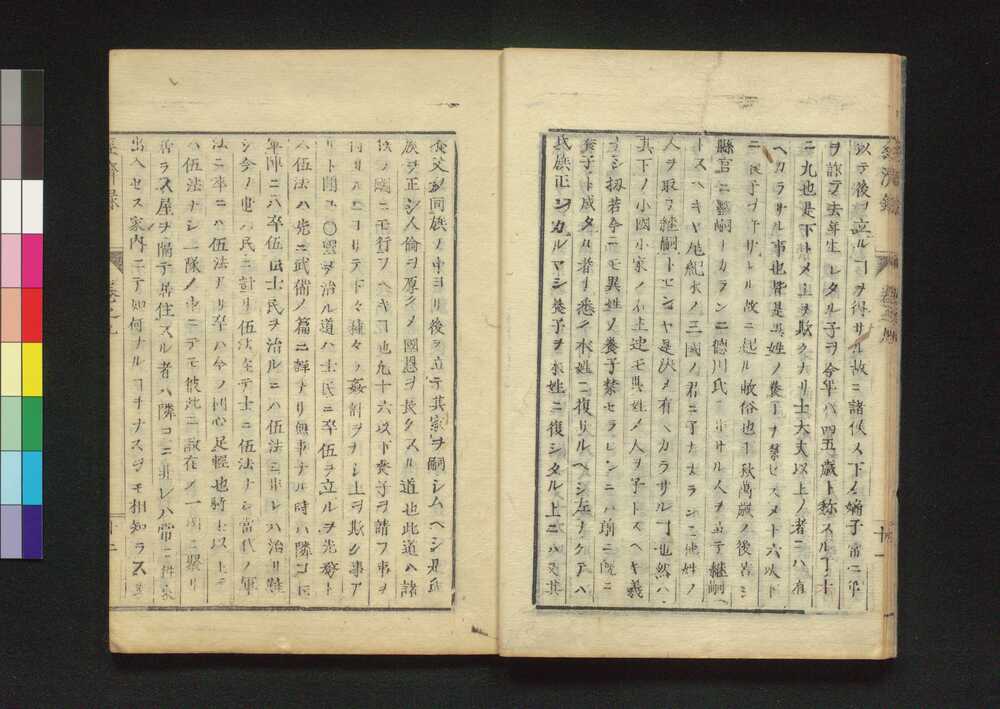 以テ後ヲ立ルヿヲ得サル故ニ諸侯ス下ノ嫡子常ニ
ヲ詐テ去年生レタル子ヲ今年ハ四五歳ト称スル丁十
ニ九也是下トメ上ヲ欺クナリ士大夫以上ノ者ニハ有
ヘカラサル事也皆是異姓ノ養子ヲ禁セスメト六以下
ニ養子ヲ許サルル故ニ起ル敗俗也千秋萬歳ノ後若シ
縣官ニ繼嗣ナカランニ德川氏ニ非サル人ヲ立テ繼嗣
トスヘキヤ尾紀水ノ三國ノ君ニ子ナカランニ他姓ノ
人ヲ取テ繼嗣トセンヤ是決メ有ヘカラサルヿ也然ハ
其下ノ小國小家ノ士迚モ異姓ノ人ヲ子トスヘキ義
ナシ扨若今ニモ異姓ノ養子禁セラレンニハ前ニ既ニ
養子ト成タル者ノ悉ク本姓ニ復リルヘシ左ナクテハ
氏族正シカルマシ養子ヲ本姓ニ復シタル上ニハ又其
養父ノ同族ノ中ヨリ後ヲ立テ其家ヲ嗣シムヘシ是氏
族ヲ正シ人倫ヲ原クメ國恩ヲ長クスル道也此道ハ諸
ノ國ニモ行フヘキヿ也九十六以下養子ヲ請フ事ヲ
ルヿヨリテ下々種々ノ姦計ヲナシ上ヲ欺ク事ア
リト聞ユ〇國ヲ治ル道ハ士民ニ卒伍ヲ立ルヲ先務ト
ス伍法ハ先ニ武備ノ篇ニ詳ナリ無事ナル時ハ隣コ
軍陣ニハ卒伍也士民ヲ治ルニハ伍法ニ非レハ治リ難
シ今ノ世ハ民ニ計リ伍法在テ士ニ伍法ナシ當代ノ軍
法ニ卒ニハ伍法アリ卒ハ今ノ同心足輕也騎士以上ニ
ハ伍法ナシ一隊ノ中ニテモ彼此ニ散在メ一所ニ聚リ
居ラス屋ヲ隣テ居住スル者ハ隣コニ非レハ常ニ
出入セス家内ニテ如何ナルヿヲナスヲモ相知ラス
經濟録
十一
十二